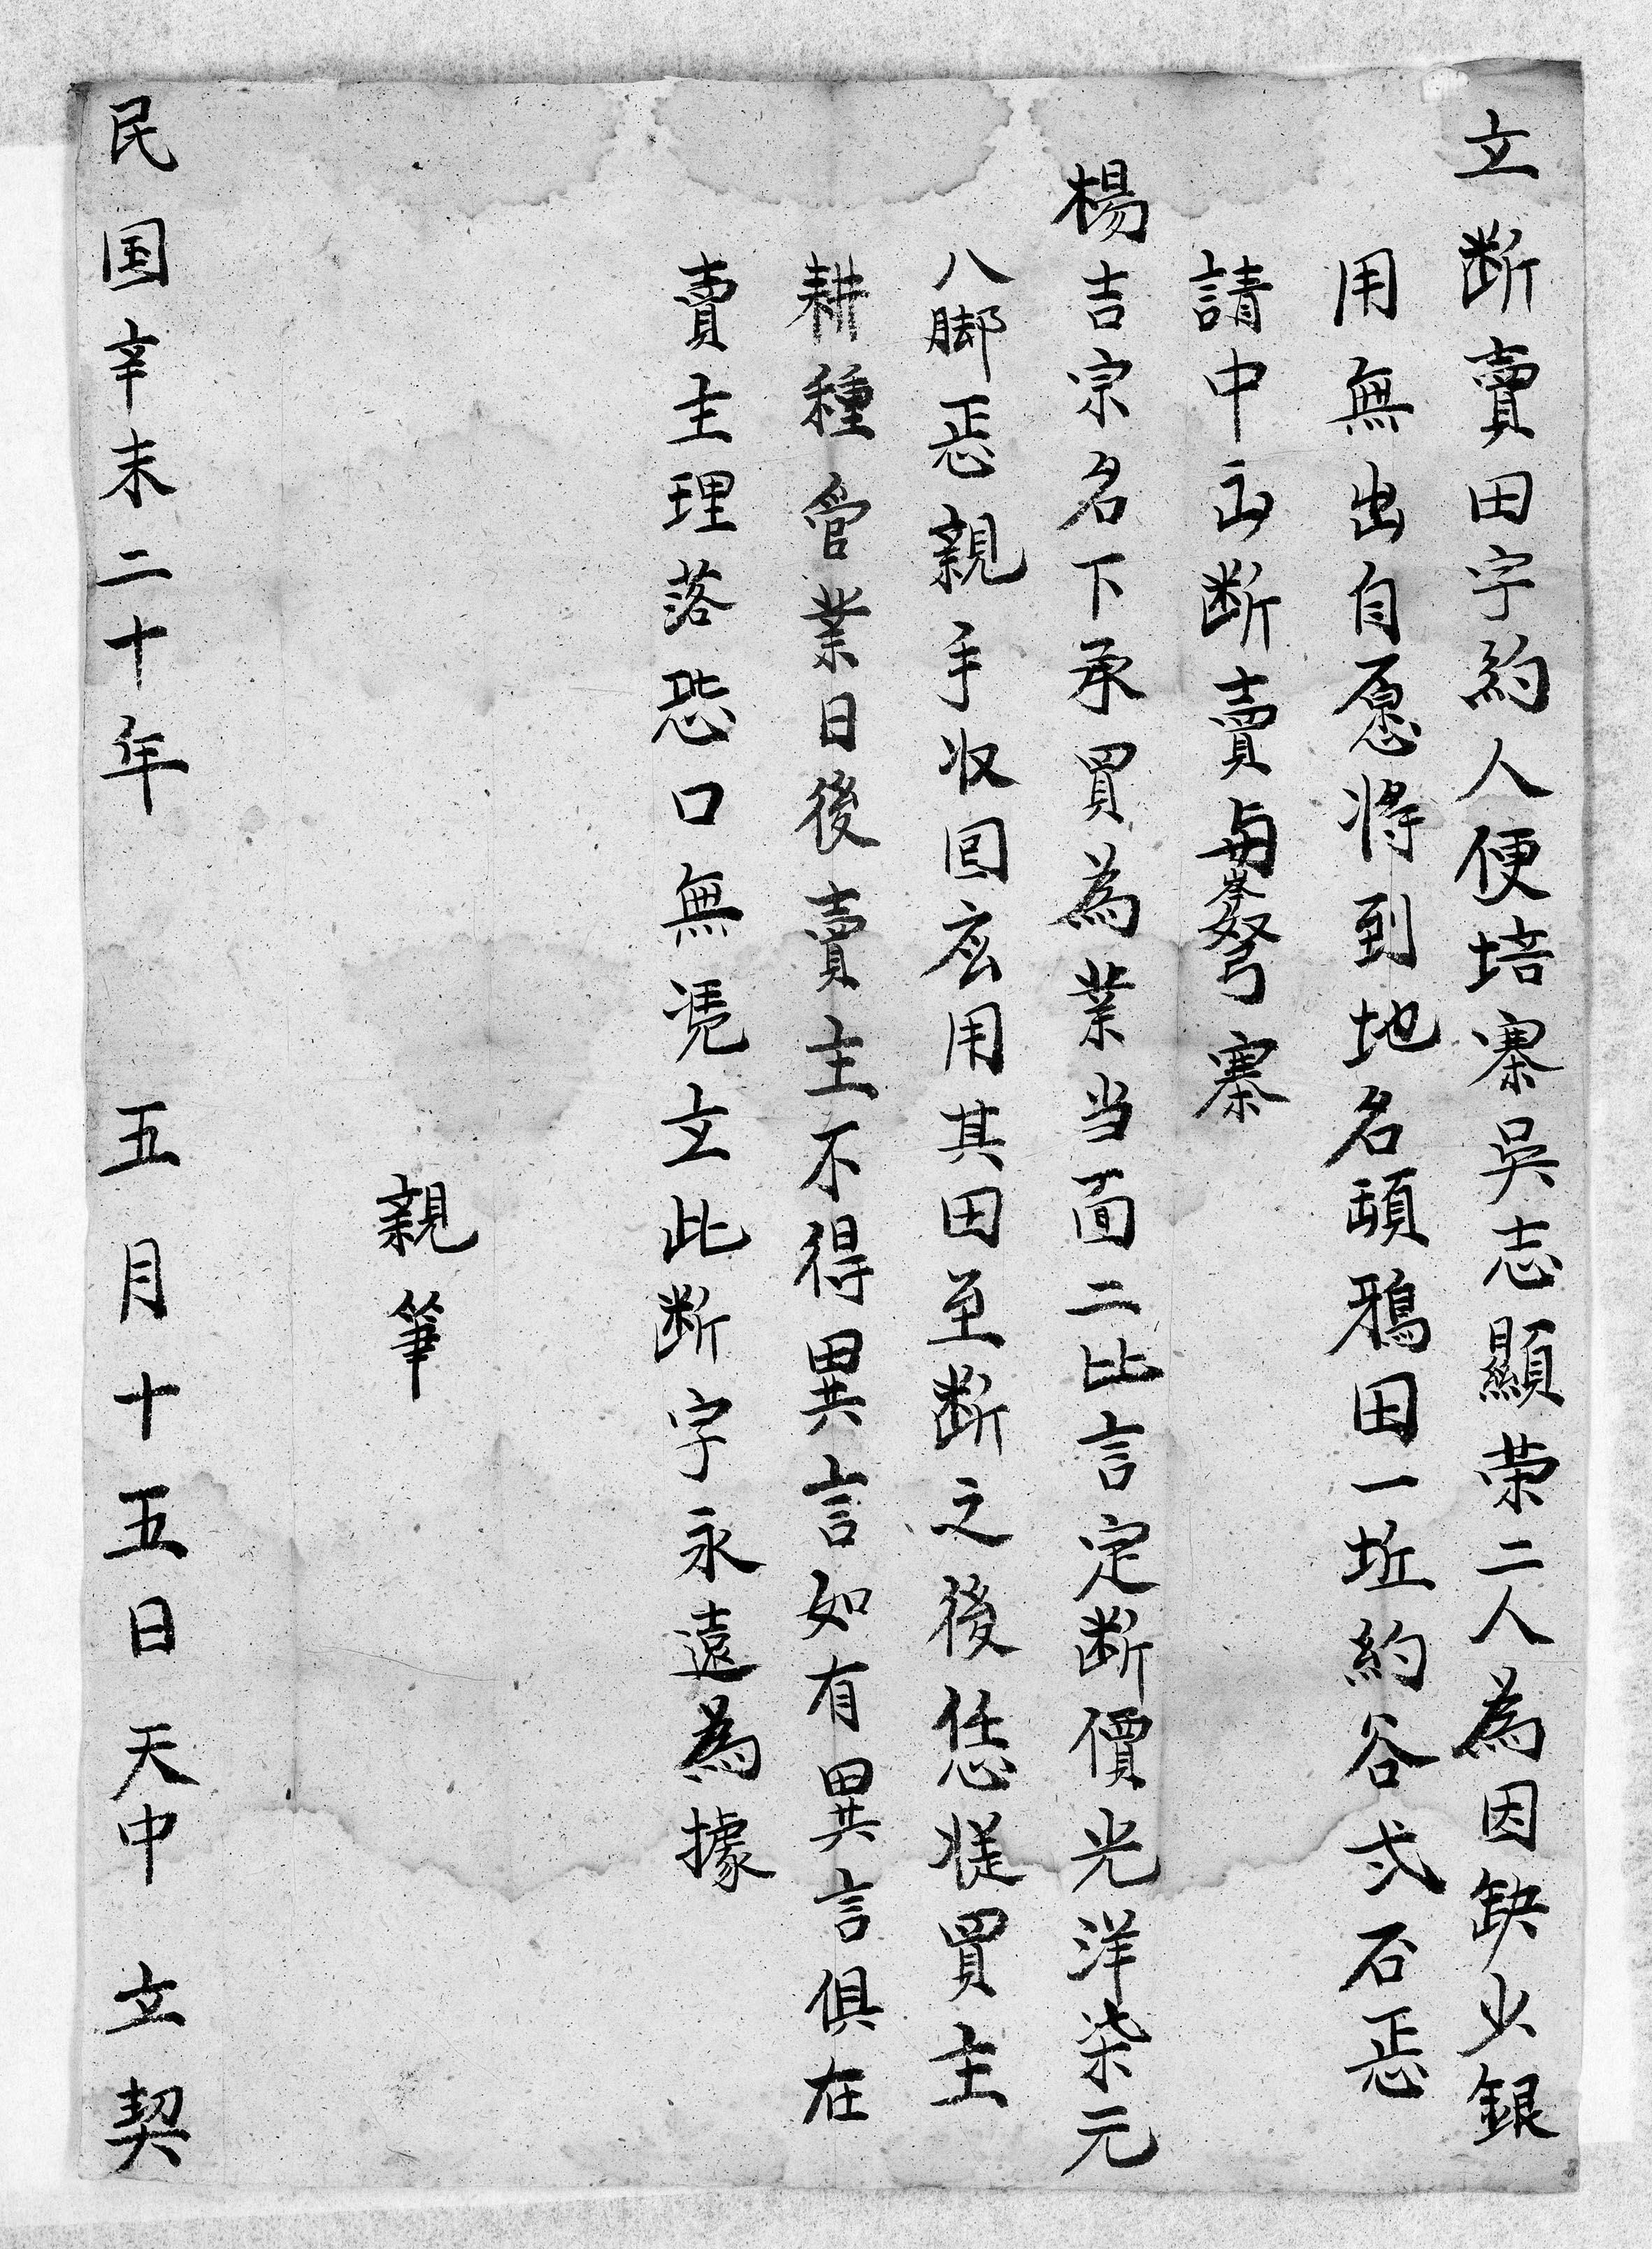 立断賣田字約人便培寨吳志顯荣二人為因缺少銀
用無出自愿将到地名頭鴉田一坵約谷弍石忢
請中正断賣与岑孥寨
楊吉宗名下承買為業当面二比言定断價光洋柒元
八脚忢親手収回應用其田至断之後恁従買主
耕種管業日後賣主不得異言如有異言俱在
賣主理落恐口無凴立此断字永遠為據
親筆
民国辛未二十年 五月十五日天中 立契